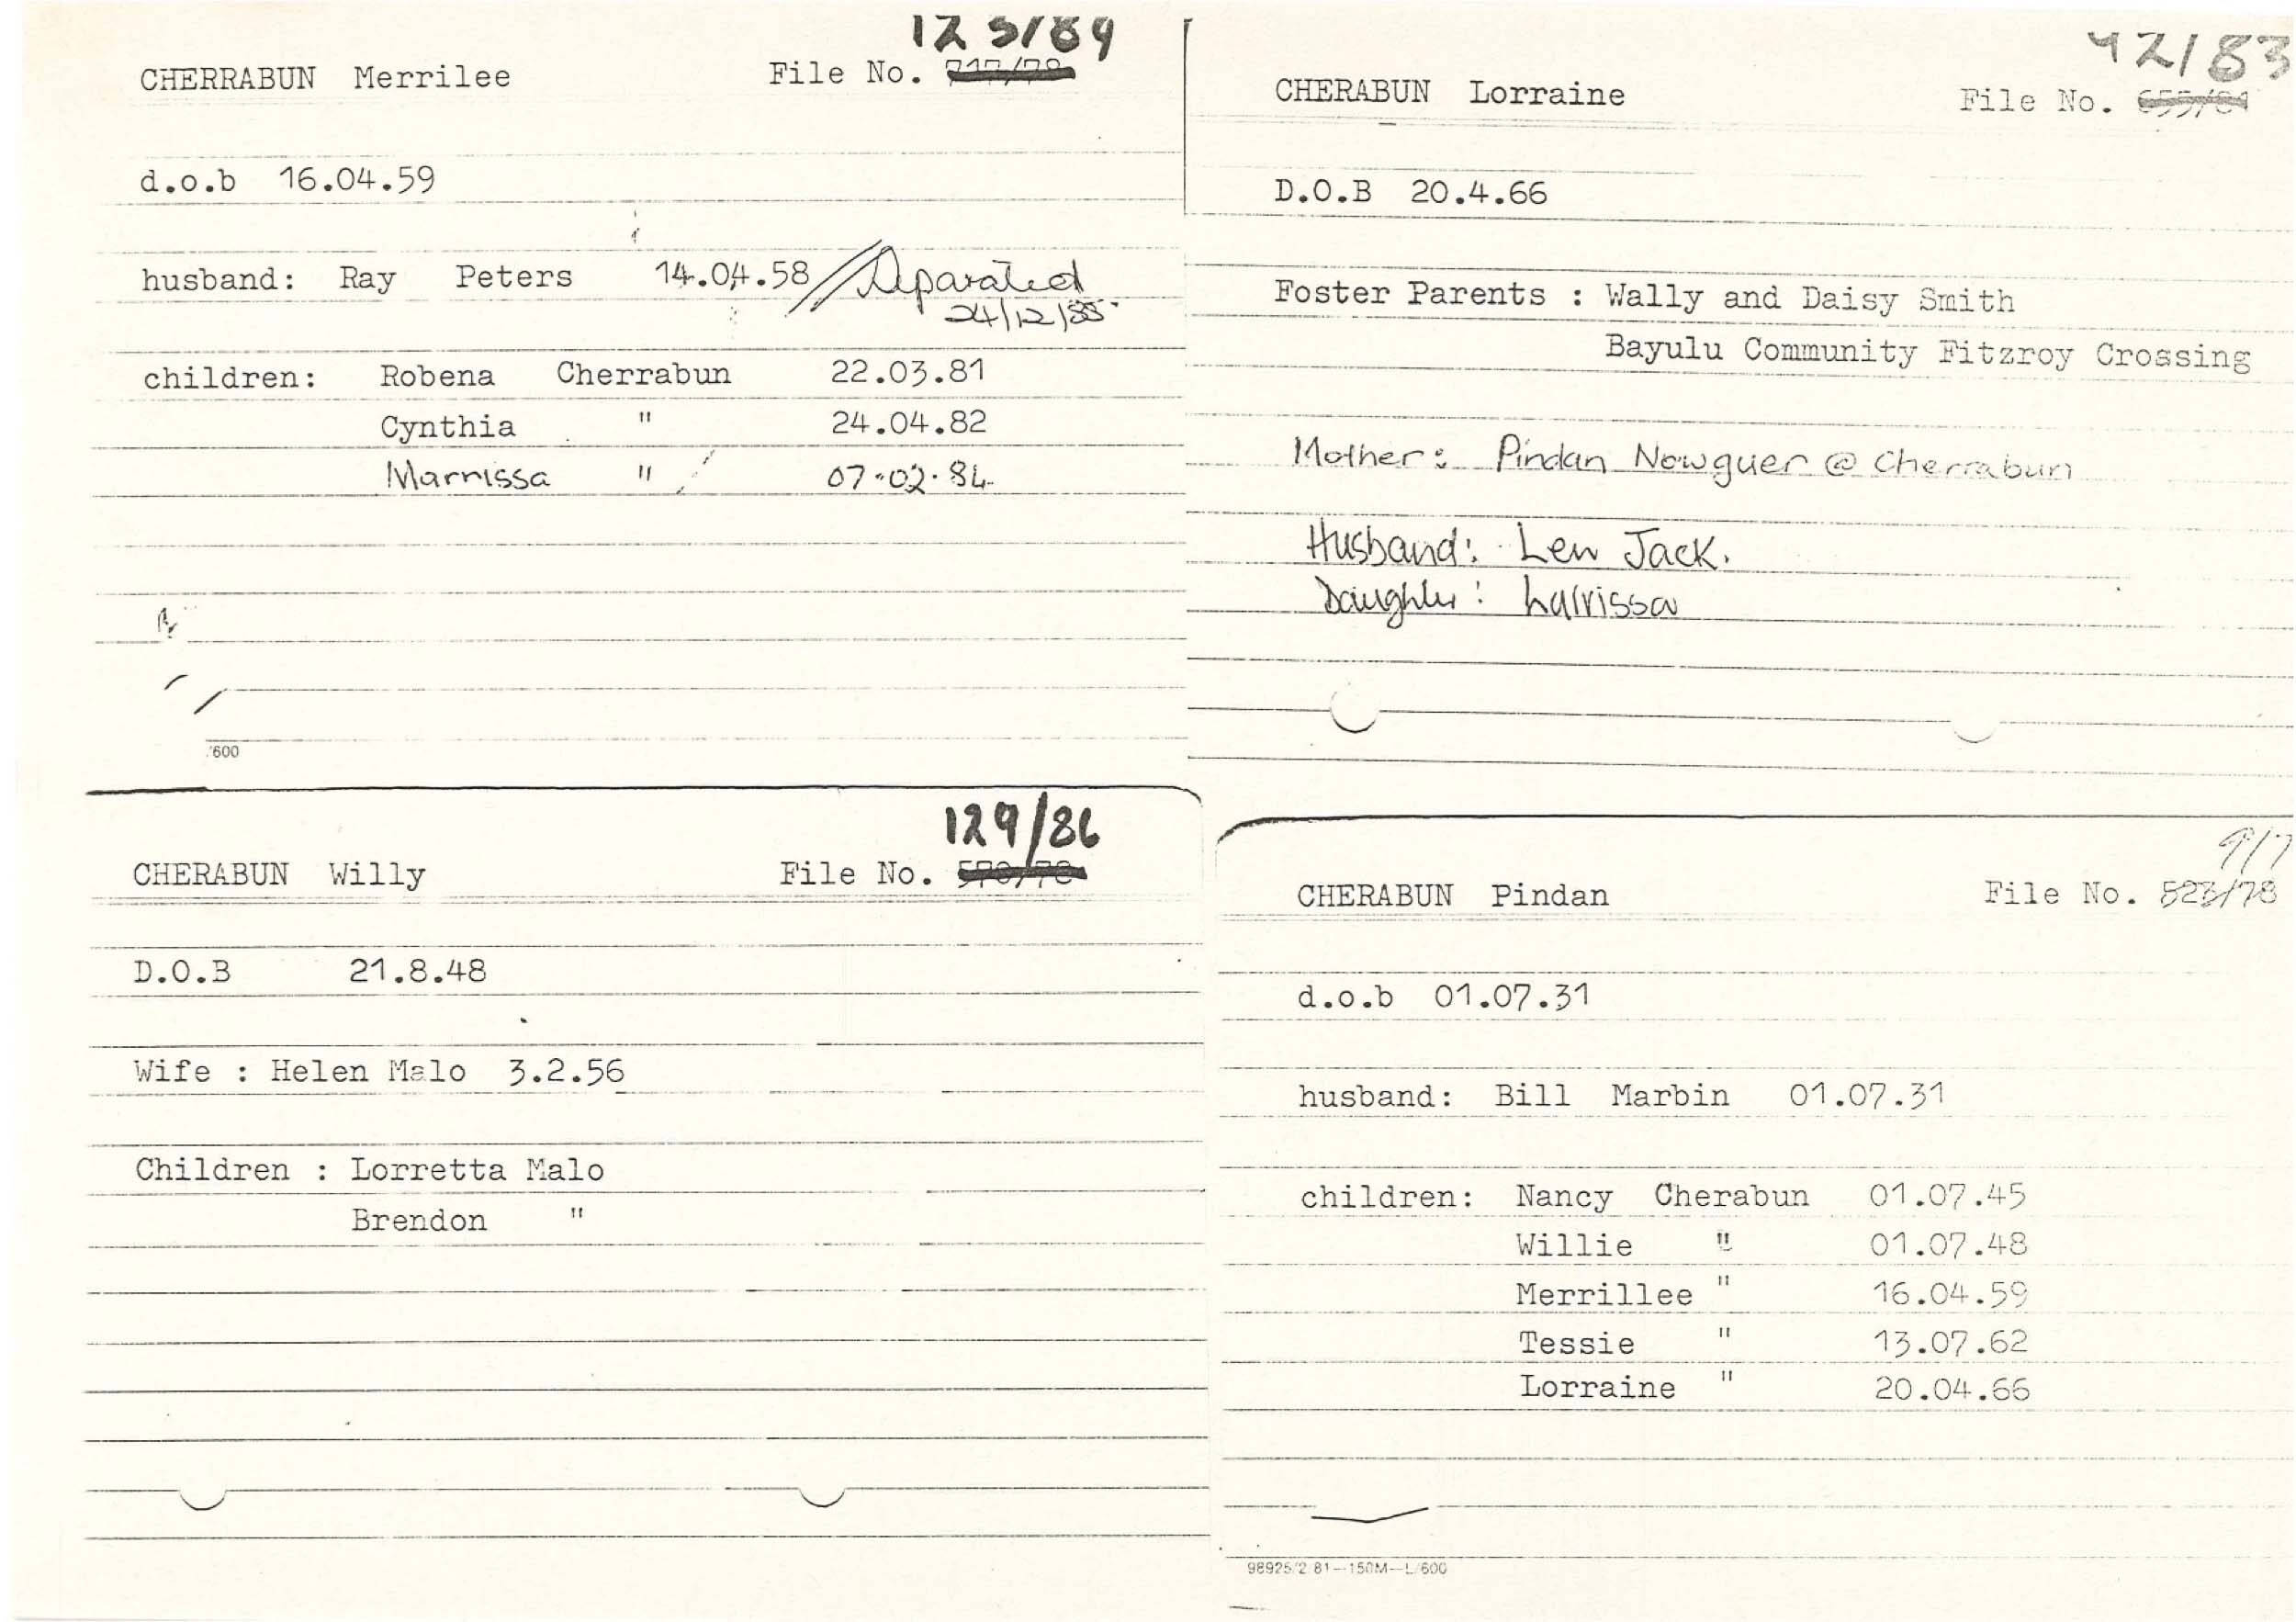 123/89
CHERRABUN Merrilee File No.
d.o.b 16.04.59
husband: Ray Peters 14.04.58 // Separated
24/12/85
children: Robena Cherrabun 22.03.81
Cynthia " 24.04.82
Marnissa " 07.02.84
/600
42/83
CHERABUN Lorraine File No.
D.O.B 20.4.66
Foster Parents : Wally and Daisy Smith
Bayulu Community Fitzroy Crossing
Mother: Pindan Nowguer @ Cherrabun
Husband: Len Jack.
Daughter: Larrissa
129/86
CHERABUN Willy File No.
D.O.B 21.8.48
Wife : Helen Malo 3.2.56
Children : Lorretta Malo
Brendon "
9/7
CHERABUN Pindan File No. 523/78
d.o.b 01.07.31
husband: Bill Marbin 01.07.31
children: Nancy Cherabun 01.07.45
Willie " 01.07.48
Merrillee " 16.04.59
Tessie " 13.07.62
Lorraine " 20.04.66
98925/2/81—150M—L/600